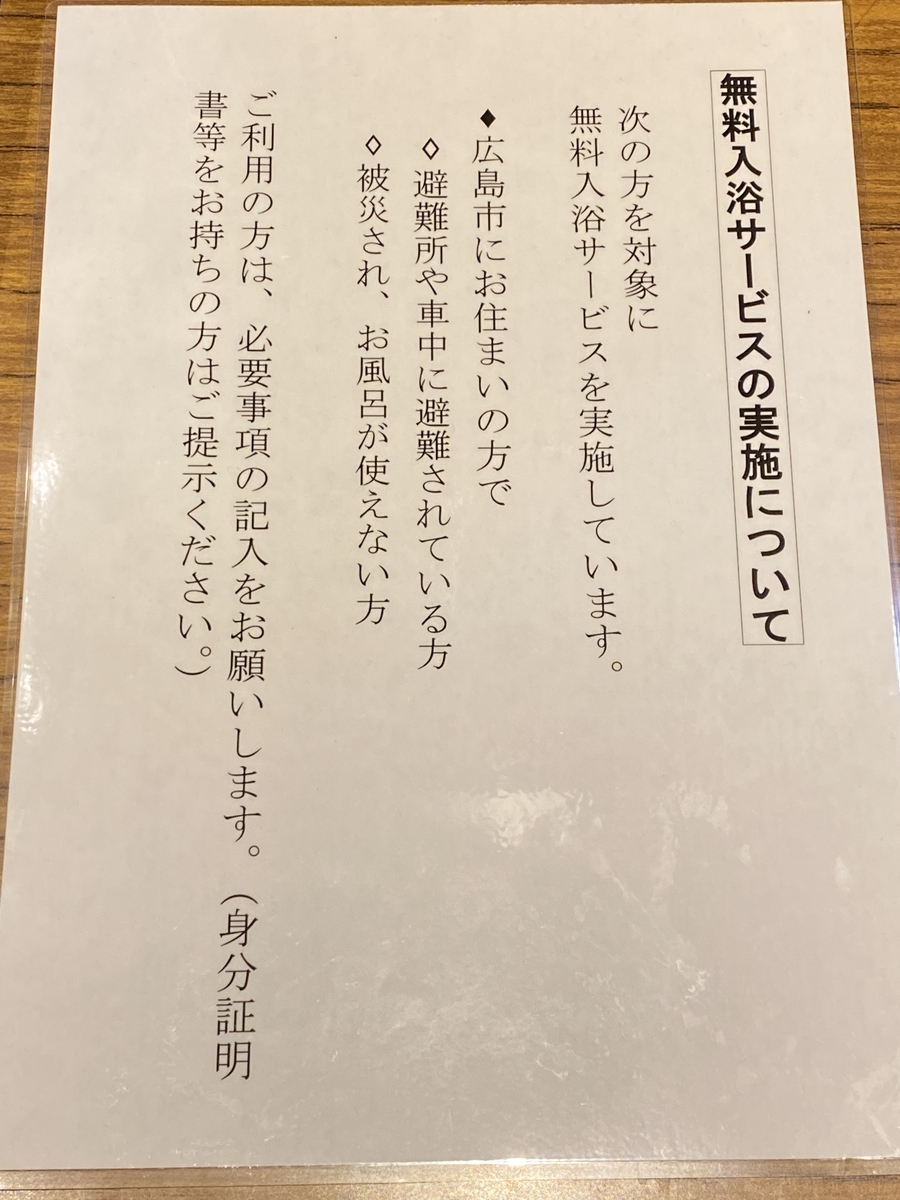 無料入浴サービスの実施について
次の方を対象に
無料入浴サービスを実施しています。
♦広島市にお住まいの方で
◊避難所や車中に避難されている方
◊被災され、お風呂が使えない方
ご利用の方は、必要事項の記入をお願いします。（身分証明
書等をお持ちの方はご提示ください。）